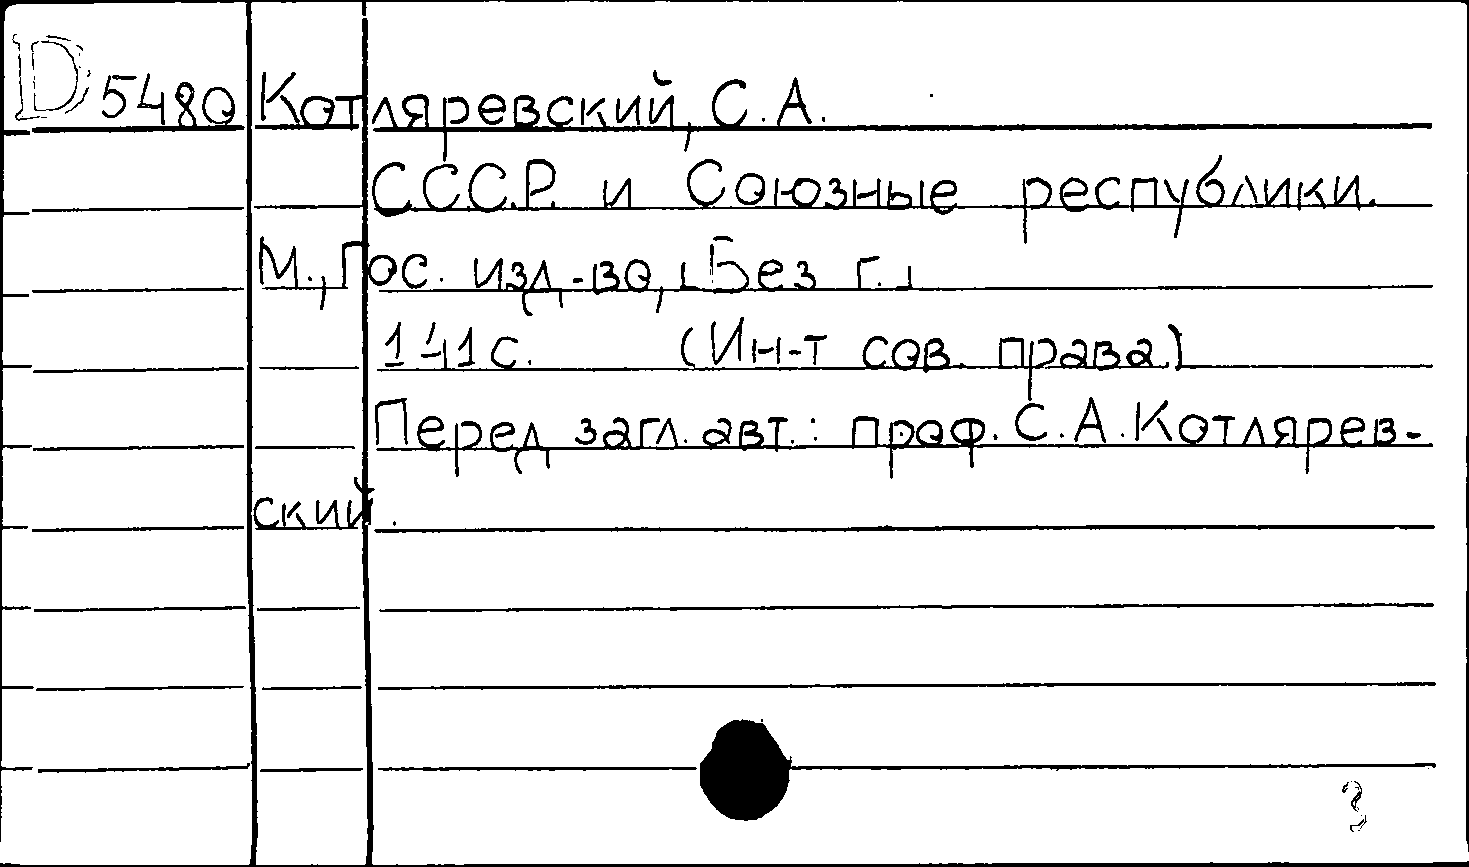 D 5480 Котляревский, С. А.
С.С.С.Р. и Союзные республики.
М., Гос. изд-во, [Без г.]
141 с. (Ин-т сов. права.)
Перед загл. авт.: проф. С. А. Котлярев-
ский.
3